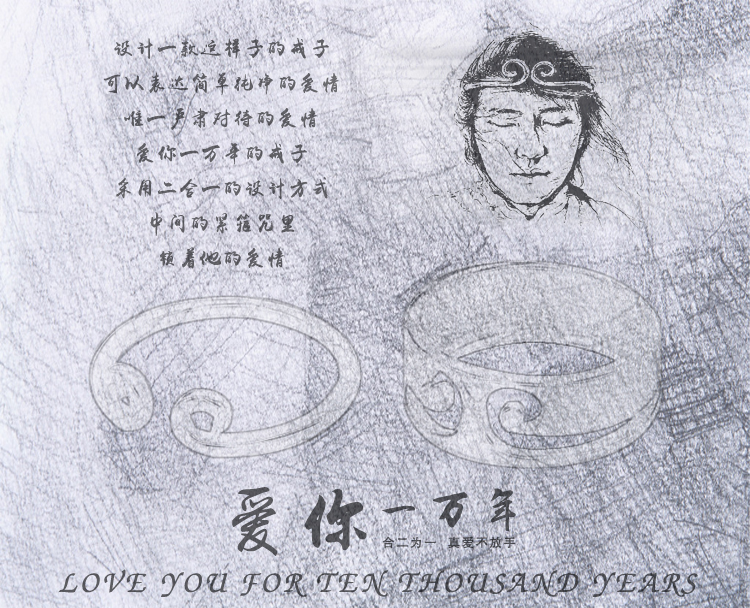 设计一款这样子的戒子
可以表达简单纯净的爱情
唯一严肃对待的爱情
爱你一万年的戒子
采用二合一的设计方式
中间的紧箍咒里
锁着他的爱情
爱你一万年
合二为一 真爱不放手
LOVE YOU FOR TEN THOUSAND YEARS